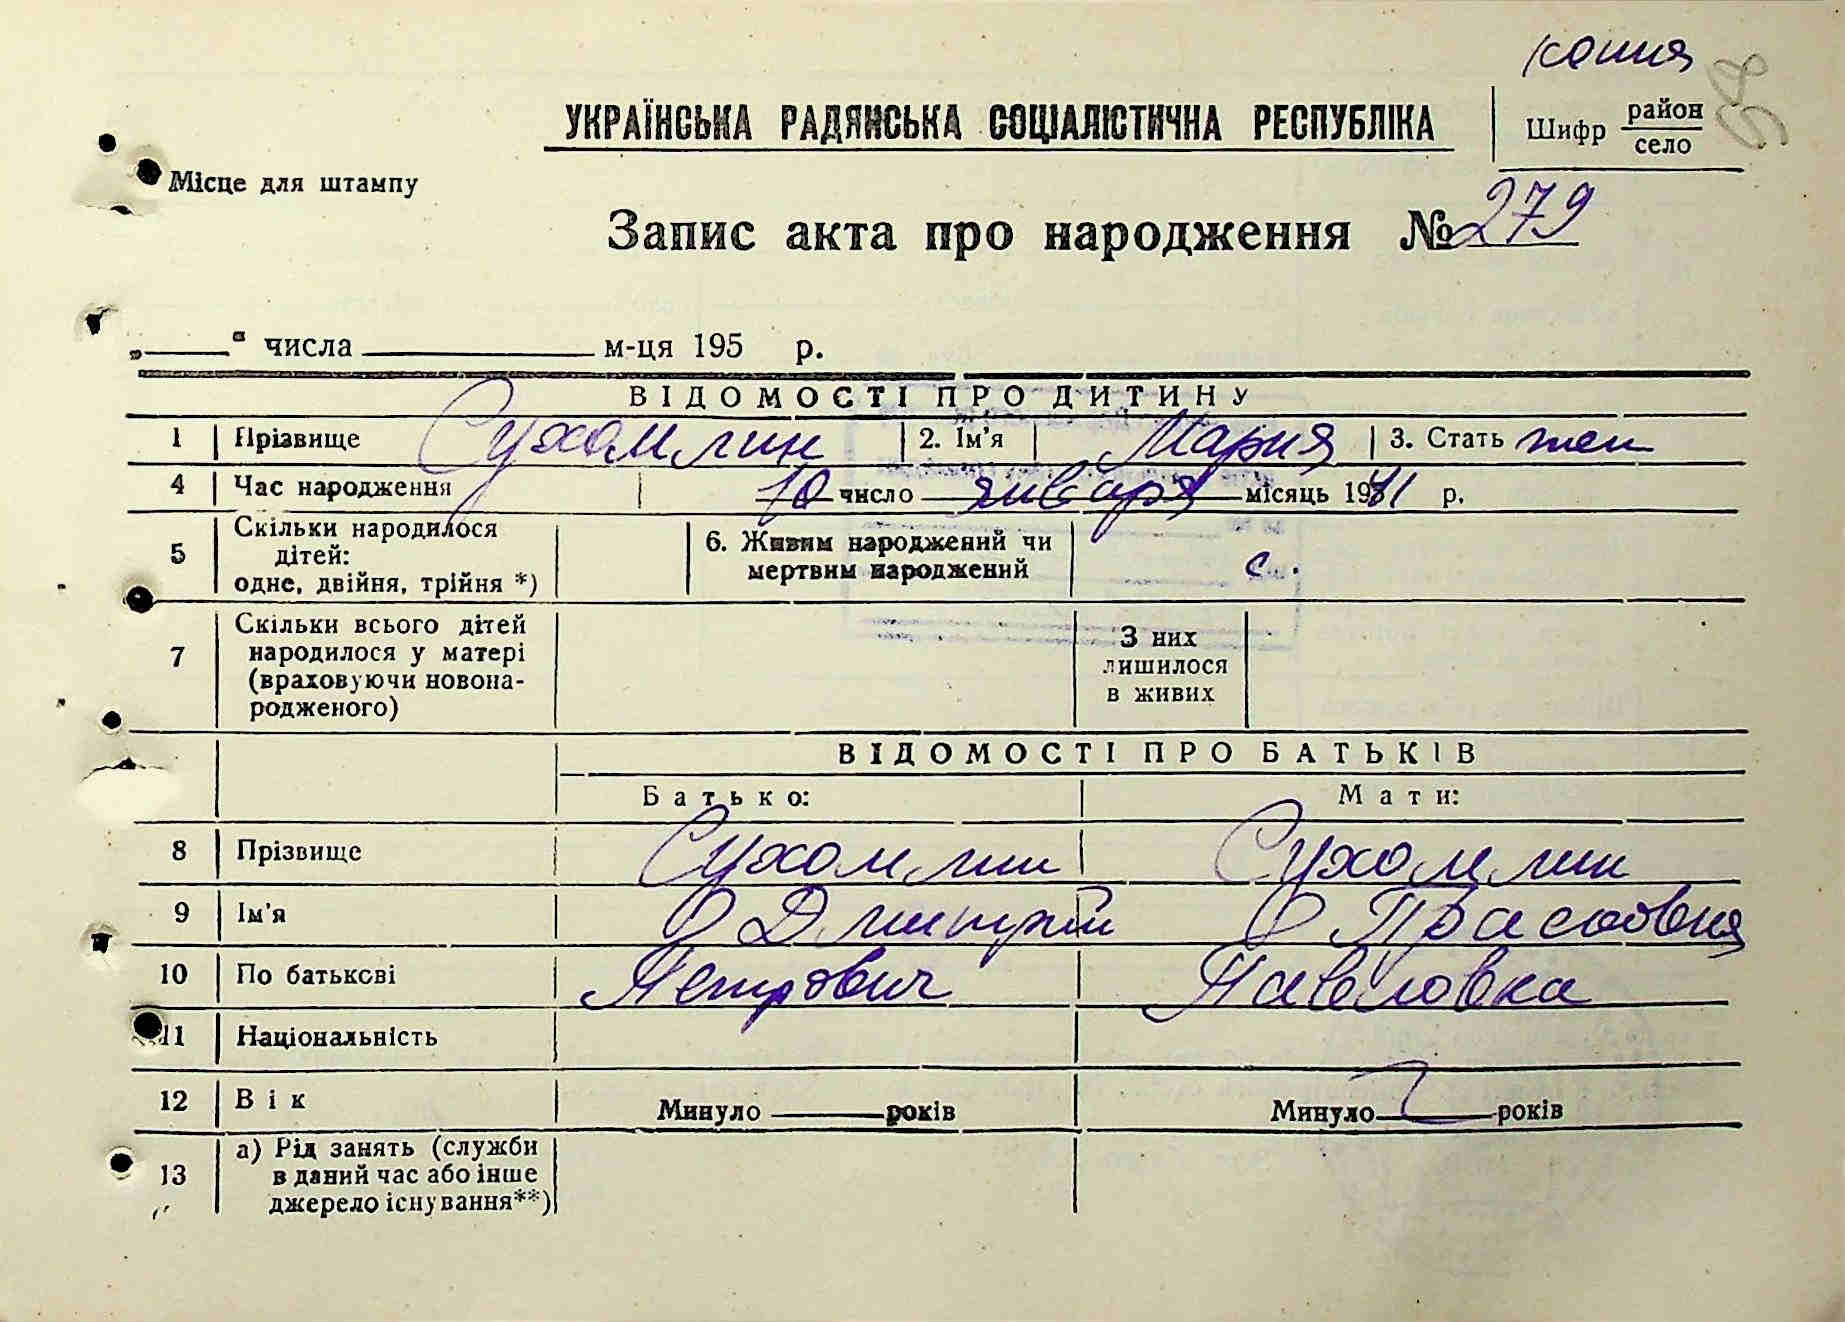 копия
УКРАЇНСЬКА РАДЯНСЬКА СОЦІАЛІСТИЧНА РЕСПУБЛІКА
Шифр район
село
58
Місце для штампу
Запис акта про народження № 279
„ “ числа м-ця 195 р.
ВІДОМОСТІ ПРО ДИТИНУ
1 Прізвище Сухомлин 2. Ім’я Мария 3. Стать жен
4 Час народження 10 число января місяць 1941 р.
5 Скільки народилося дітей: одне, двійня, трійня *) 6. Живим народжений чи мертвим народжений с.
7 Скільки всього дітей народилося у матері (враховуючи новонародженого) З них лишилося в живих
ВІДОМОСТІ ПРО БАТЬКІВ
Батько: Мати:
8 Прізвище Сухомлин Сухомлин
9 Ім’я Дмитрий Прасковия
10 По батькові Петрович Павловна
11 Національність
12 Вік Минуло років Минуло років
13 а) Рід занять (служби в даний час або інше джерело існування**)